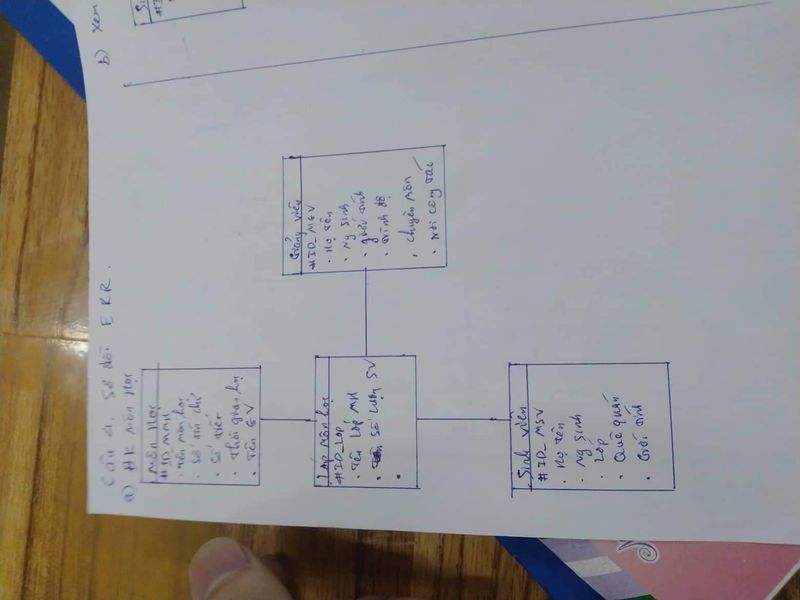 Câu 4. Sơ đồ: ERR.
a) ĐK Môn học
Môn học
#ID_MMH
• Tên môn học
• Số tín chỉ
• Số tiết
• Thời gian học
• Tên GV
Lớp môn học
#ID_Lop
• Tên lớp MH
• Số lượng SV
•
Giảng viên
#ID_MGV
• Họ tên
• Ng Sinh
• giới tính
• Trình độ
• Chuyên môn
• Nơi công tác
Sinh viên
#ID_MSV
• Họ tên
• Ng Sinh
• Lớp
• Quê quán
• Giới tính
b) Xem